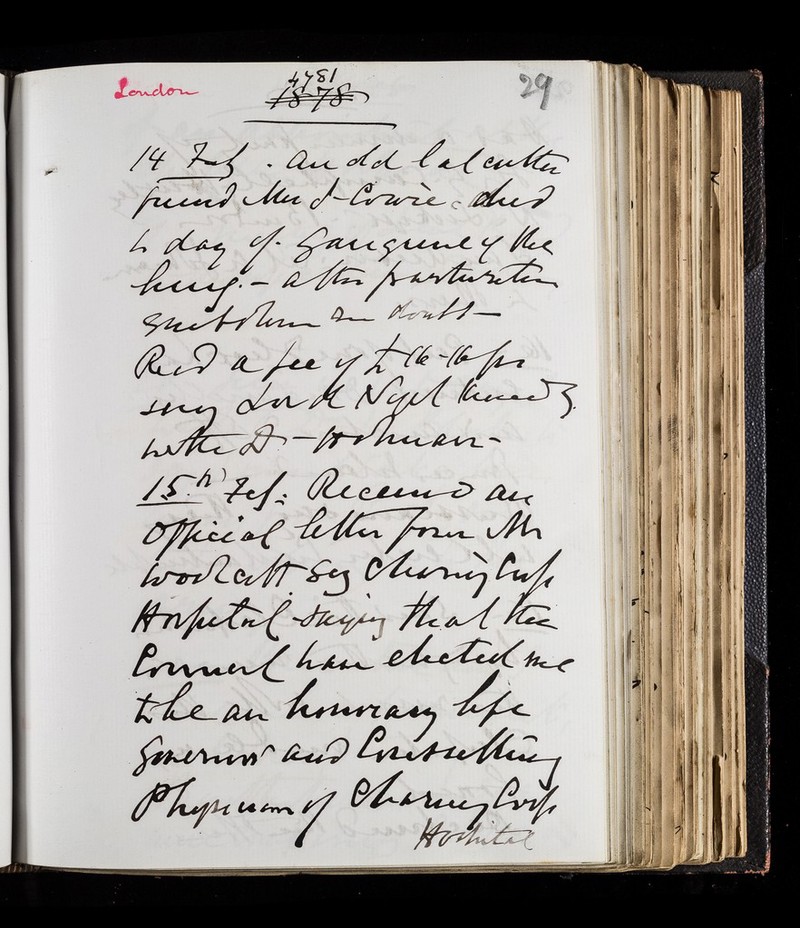 London
1781
1878
29
14 Feb. An old Calcutta
friend Mr J Cowie died
to day of gangrene of the
lung. – after
no doubt –
Recd a fee of
Lord Nigel Kennedy
with Dr – Holman –
15th Feb: Received an
Official letter from Mr
Woolcott Secy Charing Cross
Hospital saying that the
Council have elected me
to be an honorary life
Governor and Consulting
Physician of Charing Cross
Hospital